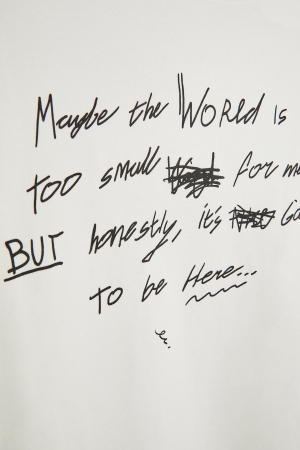 Maybe the World is
too small for me
BUT honestly, it's Go
to be Here...